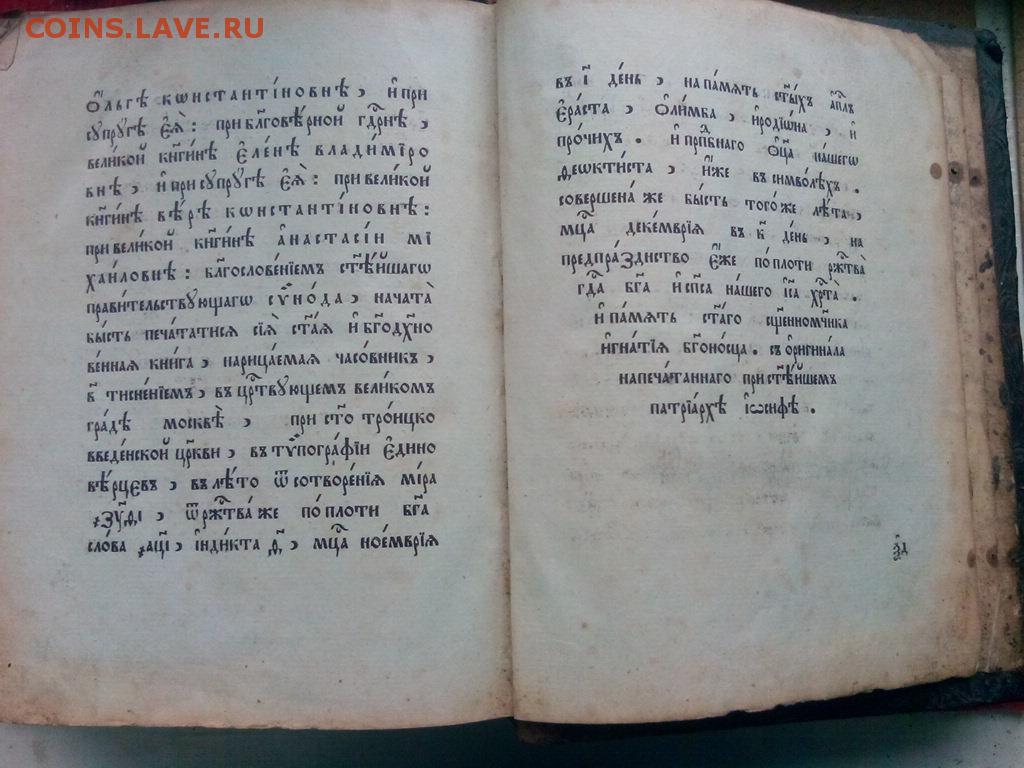 COINS.LAVE.RU
Ѻ҆́льгѣ кѡнстанті́новнѣ, и҆ при
сꙋпрꙋ́гѣ є҆ѧ̀: при бл҃говѣ́рной гдⷭ҇рнѣ,
вели́кой кн҃ги́нѣ є҆ле́нѣ влади́мїро
внѣ, и҆ при сꙋпрꙋ́гѣ є҆ѧ̀: при вели́кой
кн҃ги́нѣ вѣ́рѣ кѡнстанті́новнѣ:
при вели́кой кн҃ги́нѣ а҆настасі́и мі
ха́иловнѣ: бл҃гослове́нїемъ ст҃ѣ́йшагѡ
прави́тельствꙋющагѡ сѷно́да, начата̀
бы́сть печа́татисѧ сїѧ̀ ст҃а́ѧ и҆ бг҃одꙋхно
ве́ннаѧ кни́га, нарица́емаѧ часо́вникъ,
в҃ тисне́нїемъ, въ црⷭ҇твꙋющемъ вели́комъ
гра́дѣ москвѣ̀, при ст҃о тро́ицко
введе́нской цр҃кви, въ тѷпогра́фїи є҆дино
вѣ́рцевъ, въ лѣ́то ѿ сотворе́нїѧ мі́ра
҂зуді, ѿ ржⷭ҇тва́ же по пло́ти бг҃а
сло́ва ҂аці, і҆нді́кта д҃, мцⷭ҇а ное́мврїѧ
въ і҃ де́нь, на па́мѧть ст҃ы́хъ а҆пⷭ҇лъ
є҆ра́ста, ѻ҆ли́мба, и҆родїѡ́на, и҆
про́чихъ. и҆ прпⷣбнаго ѻ҆ц҃а̀ на́шегѡ
ѳеѡкти́ста, и҆́же въ сѵмво́лѣхъ.
соверше́на же бы́сть того́же лѣ́та,
мцⷭ҇а деке́мврїѧ въ к҃ де́нь, на
предпра́зднство є҆́же по пло́ти ржⷭ҇тва̀
гдⷭ҇а бг҃а и҆ сп҃са на́шего і҆с҃а хрⷭ҇та̀.
и҆ па́мѧть ст҃а́го сщ҃енномч҃ника
и҆гна́тїѧ бг҃оно́сца. съ ѻ҆ригина́ла
напеча́таннаго при ст҃ѣ́йшемъ
патрїа́рхѣ і҆ѡ́сифѣ.
з҃д